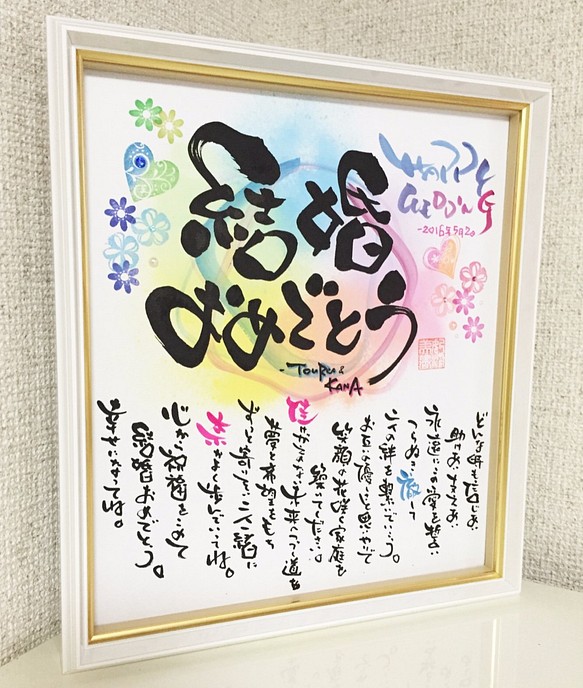 結婚
おめでとう
HAPPY
WEDDING
-2016年5月2日
-TOURU &
KANA
どんな時も信じあい
助けあい 支えあい
永遠にこの愛を誓い
つらぬき 徹して
二人の絆を繋いでいこう。
お互い優しく思いやって
笑顔の花咲く家庭を
築いてください。
佳
未来へつづく道を
夢と希望をもち
ずっと寄りそい二人一緒に
歩んでいってね。
心から祝福をこめて
結婚おめでとう。
幸せになってね。